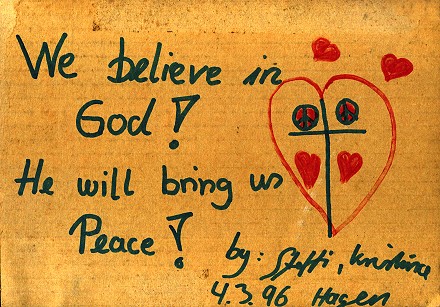 We believe in
God!
He will bring us
Peace!
by: Steffi, Kristina
4.3.96 Hagen